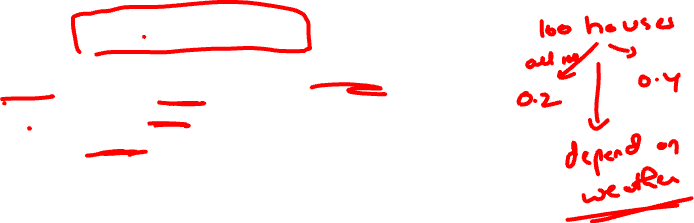 100 houses
all in
0.2
0.4
depend on
weather